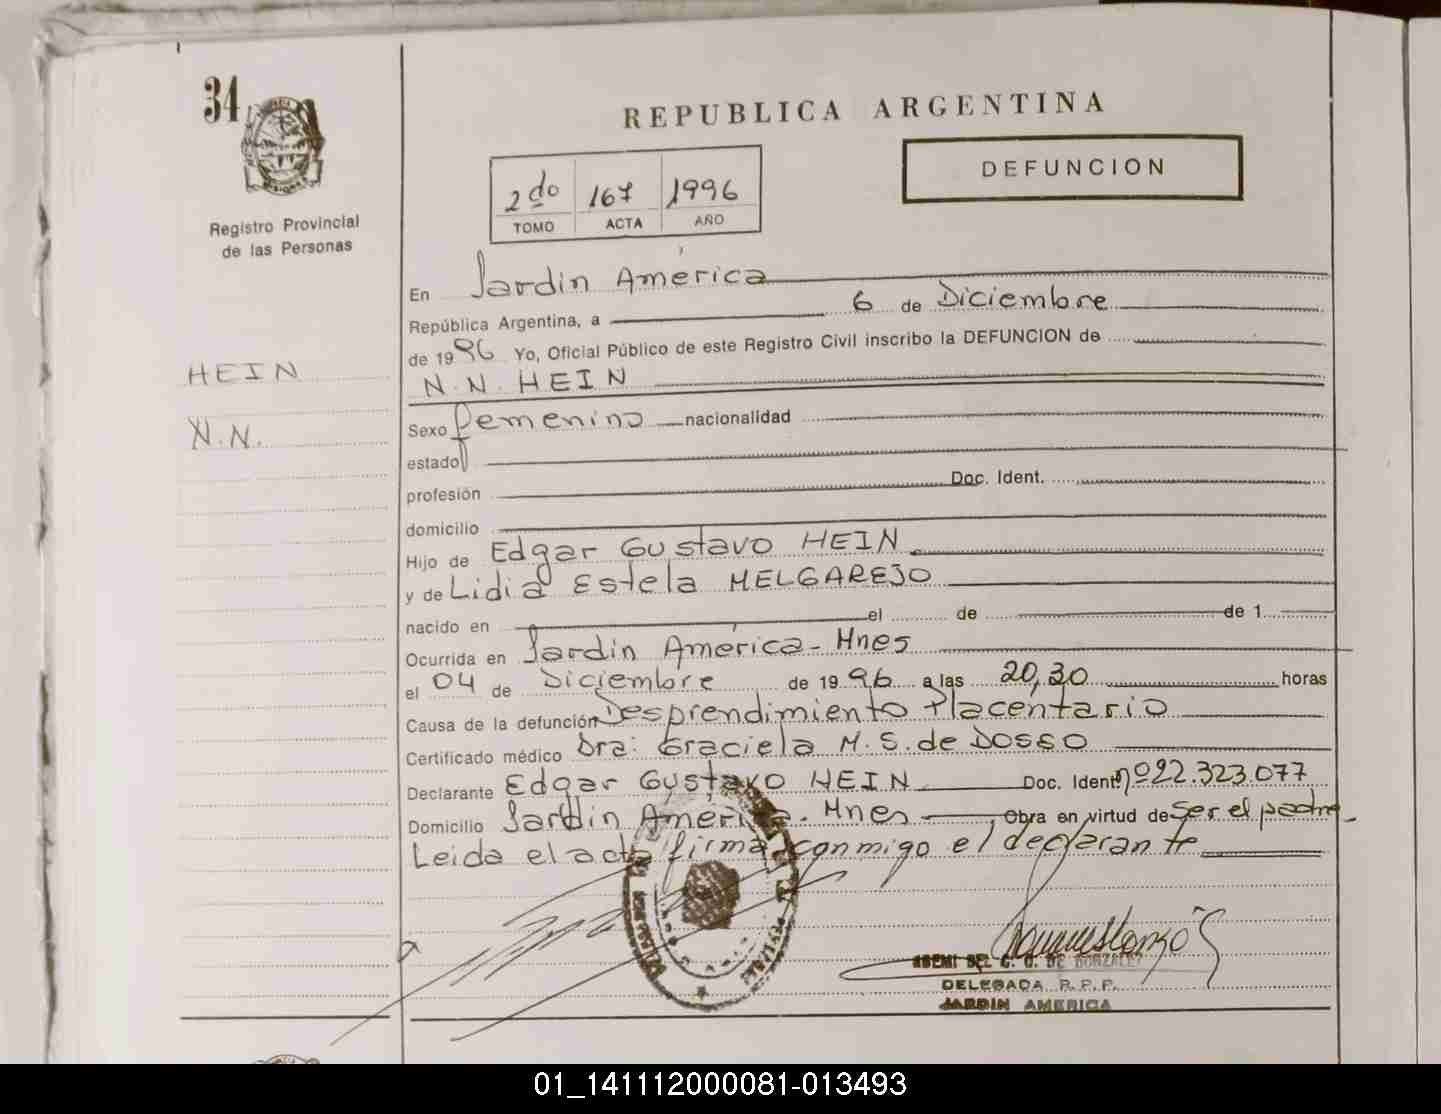 34
REPUBLICA ARGENTINA
DEFUNCION
2do 167 1996
TOMO ACTA AÑO
Registro Provincial
de las Personas
HEIN
N.N.
En Jardín América
República Argentina, a 6 de Diciembre
de 1996 Yo, Oficial Público de este Registro Civil inscribo la DEFUNCION de
N.N. HEIN
Sexo femenino nacionalidad
estado
profesión Doc. Ident.
domicilio
Hijo de Edgar Gustavo HEIN
y de Lidia Estela MELGAREJO
nacido en el de de 1
Ocurrida en Jardín América - Mnes
el 04 de Diciembre de 1996 a las 20,30 horas
Causa de la defunción Desprendimiento Placentario
Certificado médico Dra: Graciela M. S. de DOSSO
Declarante Edgar Gustavo HEIN Doc. Ident. nº 22.323.077
Domicilio Jardín América - Mnes Obra en virtud de ser el padre
Leida el acta firma conmigo el declarante
DE GONZALEZ
DELEGADA R.P.P.
JARDIN AMERICA
01_141112000081-013493